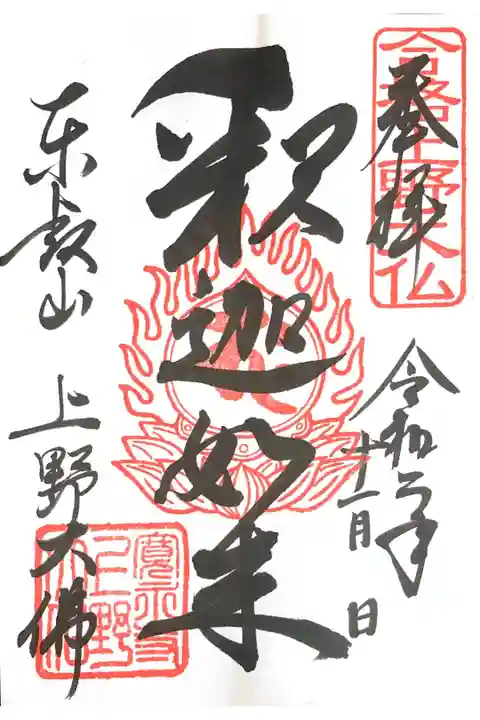 合格上野大仏
奉拝
令和二年
十一月 日
釈迦如来
東叡山 上野大佛
寛永寺
上野
大仏